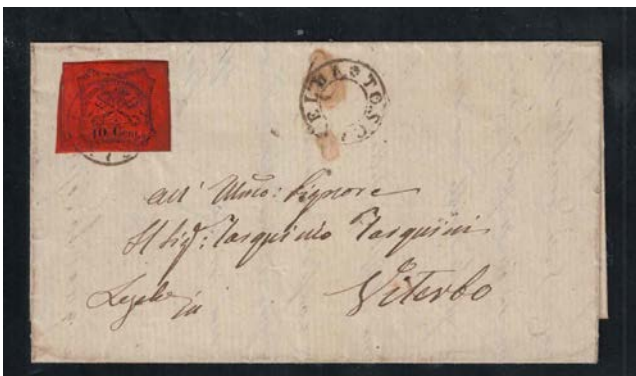 10 Cent.
all' Illmo: Signore
Il Sig: Tarquinio Tarquini
in
Viterbo